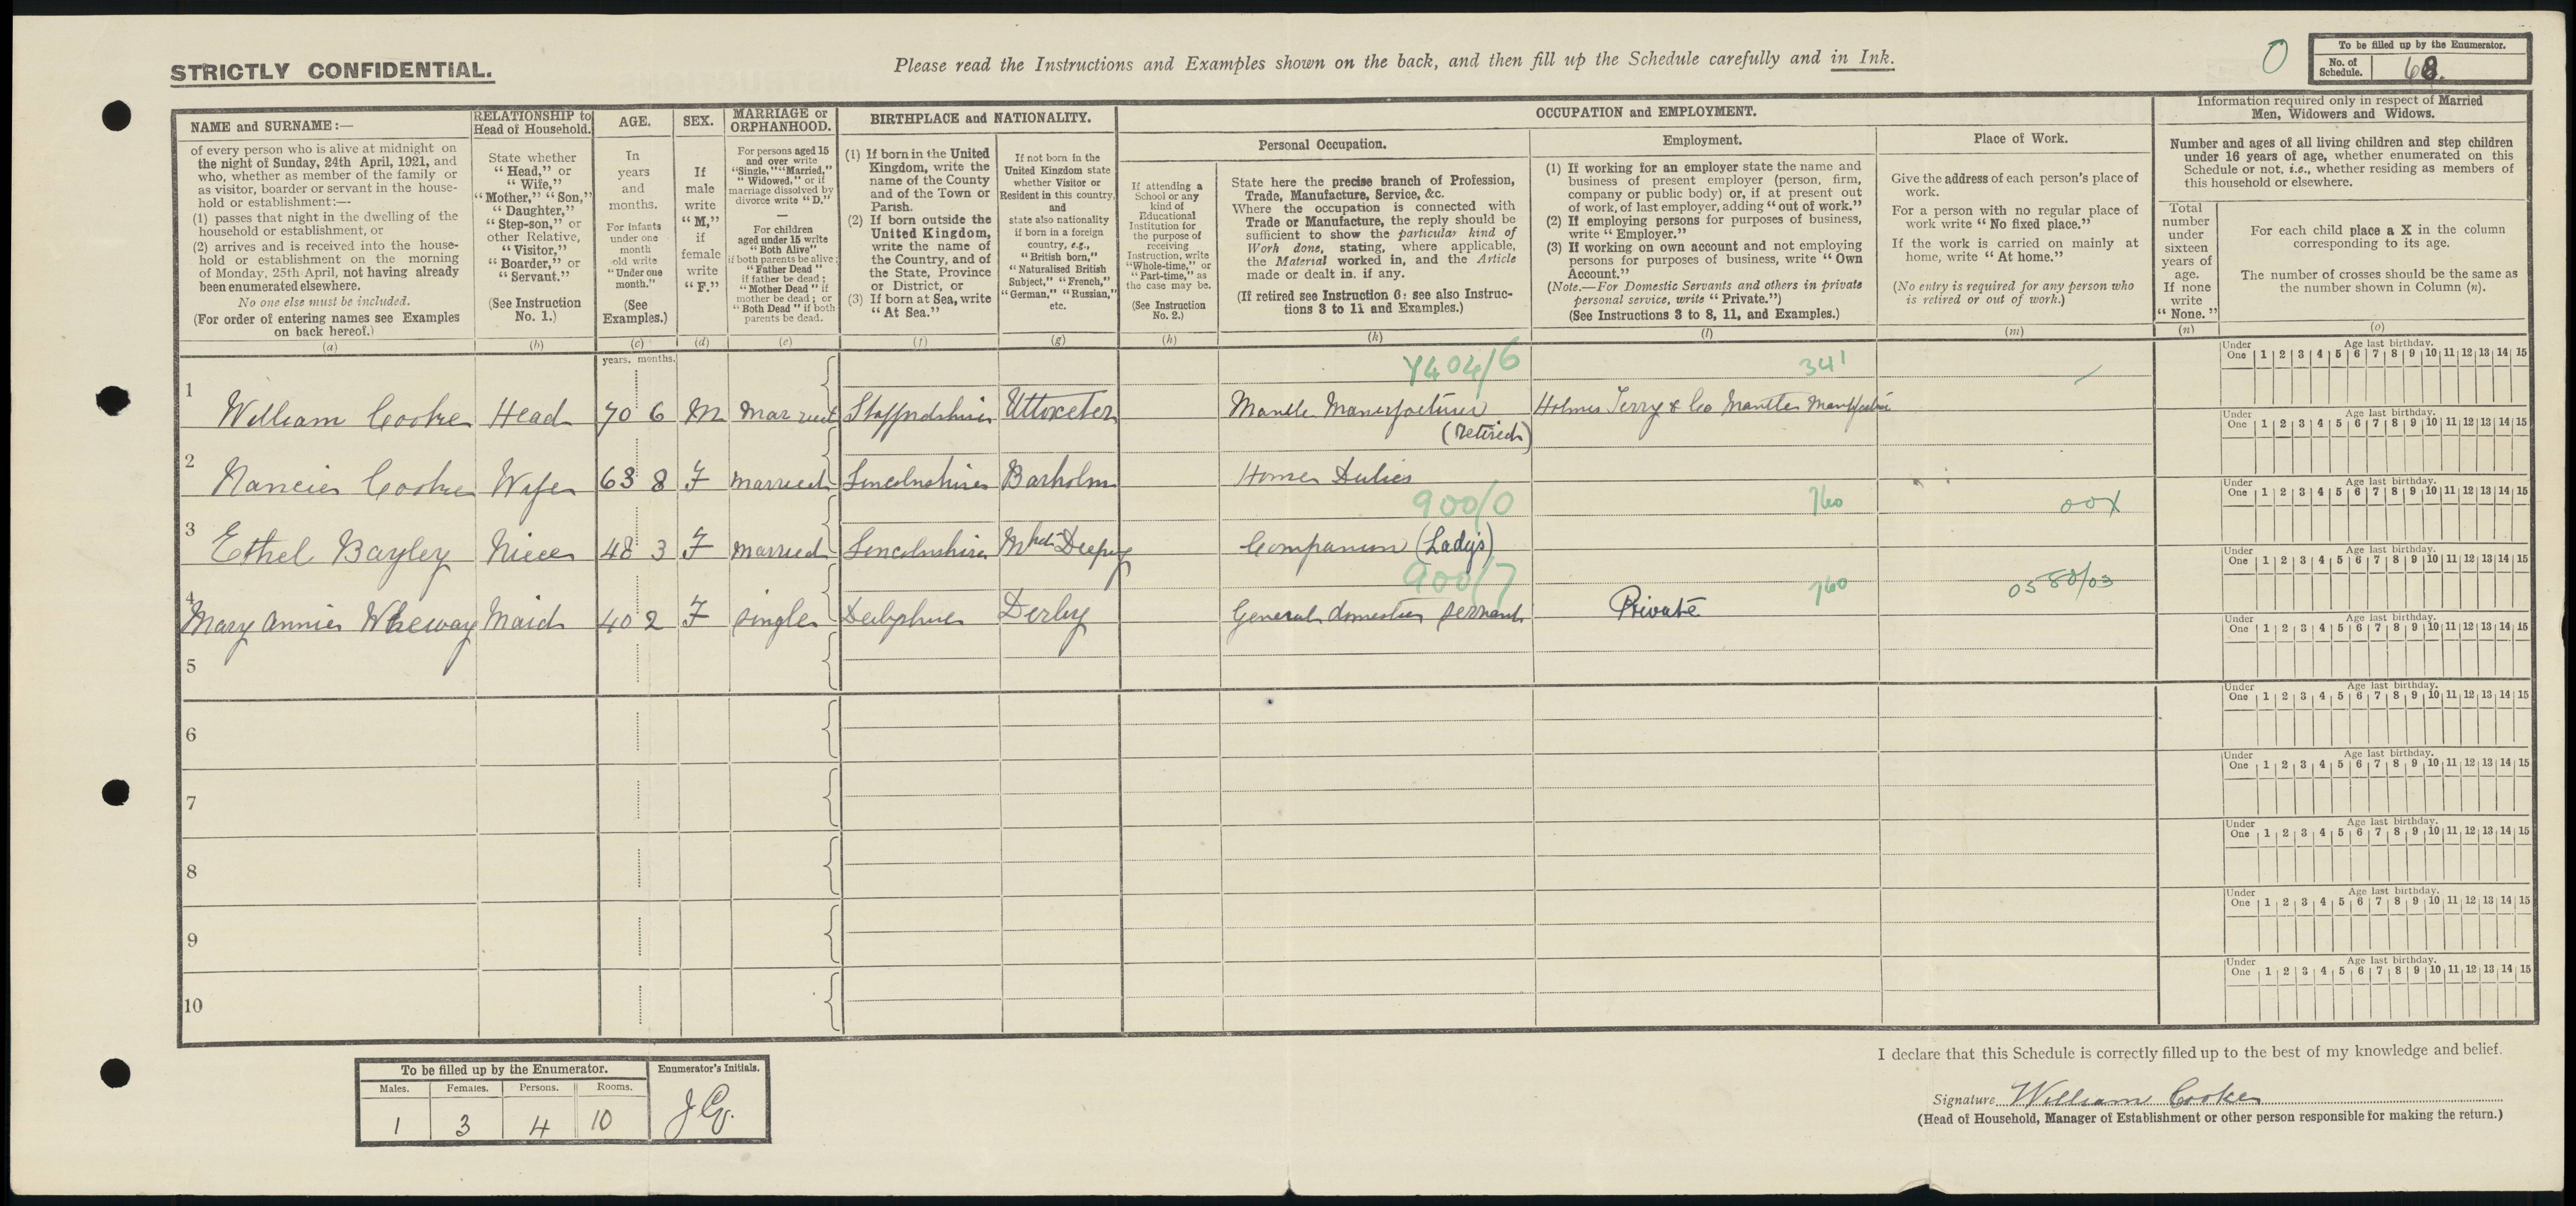 STRICTLY CONFIDENTIAL.
Please read the Instructions and Examples shown on the back, and then fill up the Schedule carefully and in Ink.
0
To be filled up by the Enumerator.
No. of Schedule. 68.
NAME and SURNAME:—
of every person who is alive at midnight on
the night of Sunday, 24th April, 1921, and
who, whether as member of the family or
as visitor, boarder or servant in the house-
hold or establishment:—
(1) passes that night in the dwelling of the
household or establishment, or
(2) arrives and is received into the house-
hold or establishment on the morning
of Monday, 25th April, not having already
been enumerated elsewhere.
No one else must be included.
(For order of entering names see Examples
on back hereof.)
(a)
RELATIONSHIP to
Head of Household.
State whether
"Head," or
"Wife,"
"Mother," "Son,"
"Daughter,"
"Step-son," or
other Relative,
"Visitor,"
"Boarder," or
"Servant."
(See Instruction
No. 1.)
(b)
AGE.
In
years
and
months.
For infants
under one
month
old write
"Under one
month."
(See
Examples.)
(c)
SEX.
If
male
write
"M,"
if
female
write
"F."
(d)
MARRIAGE or
ORPHANHOOD.
For persons aged 15
and over write
"Single," "Married,"
"Widowed," or if
marriage dissolved by
divorce write "D."
—
For children
aged under 15 write
"Both Alive"
if both parents be alive;
"Father Dead"
if father be dead;
"Mother Dead" if
mother be dead; or
"Both Dead" if both
parents be dead.
(e)
BIRTHPLACE and NATIONALITY.
(1) If born in the United
Kingdom, write the
name of the County
and of the Town or
Parish.
(2) If born outside the
United Kingdom,
write the name of
the Country, and of
the State, Province
or District, or
(3) If born at Sea, write
"At Sea."
(f)
If not born in the
United Kingdom state
whether Visitor or
Resident in this country,
and
state also nationality
if born in a foreign
country, e.g.,
"British born,"
"Naturalised British
Subject," "French,"
"German," "Russian,"
etc.
(g)
OCCUPATION and EMPLOYMENT.
If attending a
School or any
kind of
Educational
Institution for
the purpose of
receiving
Instruction, write
"Whole-time," or
"Part-time," as
the case may be.
(See Instruction
No. 2.)
(h)
Personal Occupation.
State here the precise branch of Profession,
Trade, Manufacture, Service, &c.
Where the occupation is connected with
Trade or Manufacture, the reply should be
sufficient to show the particular kind of
Work done, stating, where applicable,
the Material worked in, and the Article
made or dealt in, if any.
(If retired see Instruction 6: see also Instruc-
tions 3 to 11 and Examples.)
(k)
Employment.
(1) If working for an employer state the name and
business of present employer (person, firm,
company or public body) or, if at present out
of work, of last employer, adding "out of work."
(2) If employing persons for purposes of business,
write "Employer."
(3) If working on own account and not employing
persons for purposes of business, write "Own
Account."
(Note.—For Domestic Servants and others in private
personal service, write "Private.")
(See Instructions 3 to 8, 11, and Examples.)
(l)
Place of Work.
Give the address of each person's place of
work.
For a person with no regular place of
work write "No fixed place."
If the work is carried on mainly at
home, write "At home."
(No entry is required for any person who
is retired or out of work.)
(m)
Information required only in respect of Married
Men, Widowers and Widows.
Number and ages of all living children and step children
under 16 years of age, whether enumerated on this
Schedule or not, i.e., whether residing as members of
this household or elsewhere.
Total
number
under
sixteen
years of
age.
If none
write
"None."
(n)
For each child place a X in the column
corresponding to its age.
The number of crosses should be the same as
the number shown in Column (n).
(o)
years. months.
Y404/6 341
1 William Cooke Head 70 6 M Married Staffordshire Uttoxeter Mantle Manufacturer (retired) Holmes Terry & Co Mantle Manufacturer
Under One Age last birthday. 1 2 3 4 5 6 7 8 9 10 11 12 13 14 15
2 Nancie Cooke Wife 63 8 F Married Lincolnshire Barholm Home Duties
Under One Age last birthday. 1 2 3 4 5 6 7 8 9 10 11 12 13 14 15
900/0 760 00X
3 Ethel Bayley Niece 48 3 F Married Lincolnshire Mket Deeping Companion (Lady's)
Under One Age last birthday. 1 2 3 4 5 6 7 8 9 10 11 12 13 14 15
900/7 760 0580/03
4 Mary Annie Wheway Maid 40 2 F single Derbyshire Derby General domestic servant Private
Under One Age last birthday. 1 2 3 4 5 6 7 8 9 10 11 12 13 14 15
5
Under One Age last birthday. 1 2 3 4 5 6 7 8 9 10 11 12 13 14 15
6
Under One Age last birthday. 1 2 3 4 5 6 7 8 9 10 11 12 13 14 15
7
Under One Age last birthday. 1 2 3 4 5 6 7 8 9 10 11 12 13 14 15
8
Under One Age last birthday. 1 2 3 4 5 6 7 8 9 10 11 12 13 14 15
9
Under One Age last birthday. 1 2 3 4 5 6 7 8 9 10 11 12 13 14 15
10
Under One Age last birthday. 1 2 3 4 5 6 7 8 9 10 11 12 13 14 15
To be filled up by the Enumerator.
Males. Females. Persons. Rooms.
1 3 4 10
Enumerator's Initials.
I declare that this Schedule is correctly filled up to the best of my knowledge and belief.
Signature William Cooke
(Head of Household, Manager of Establishment or other person responsible for making the return.)